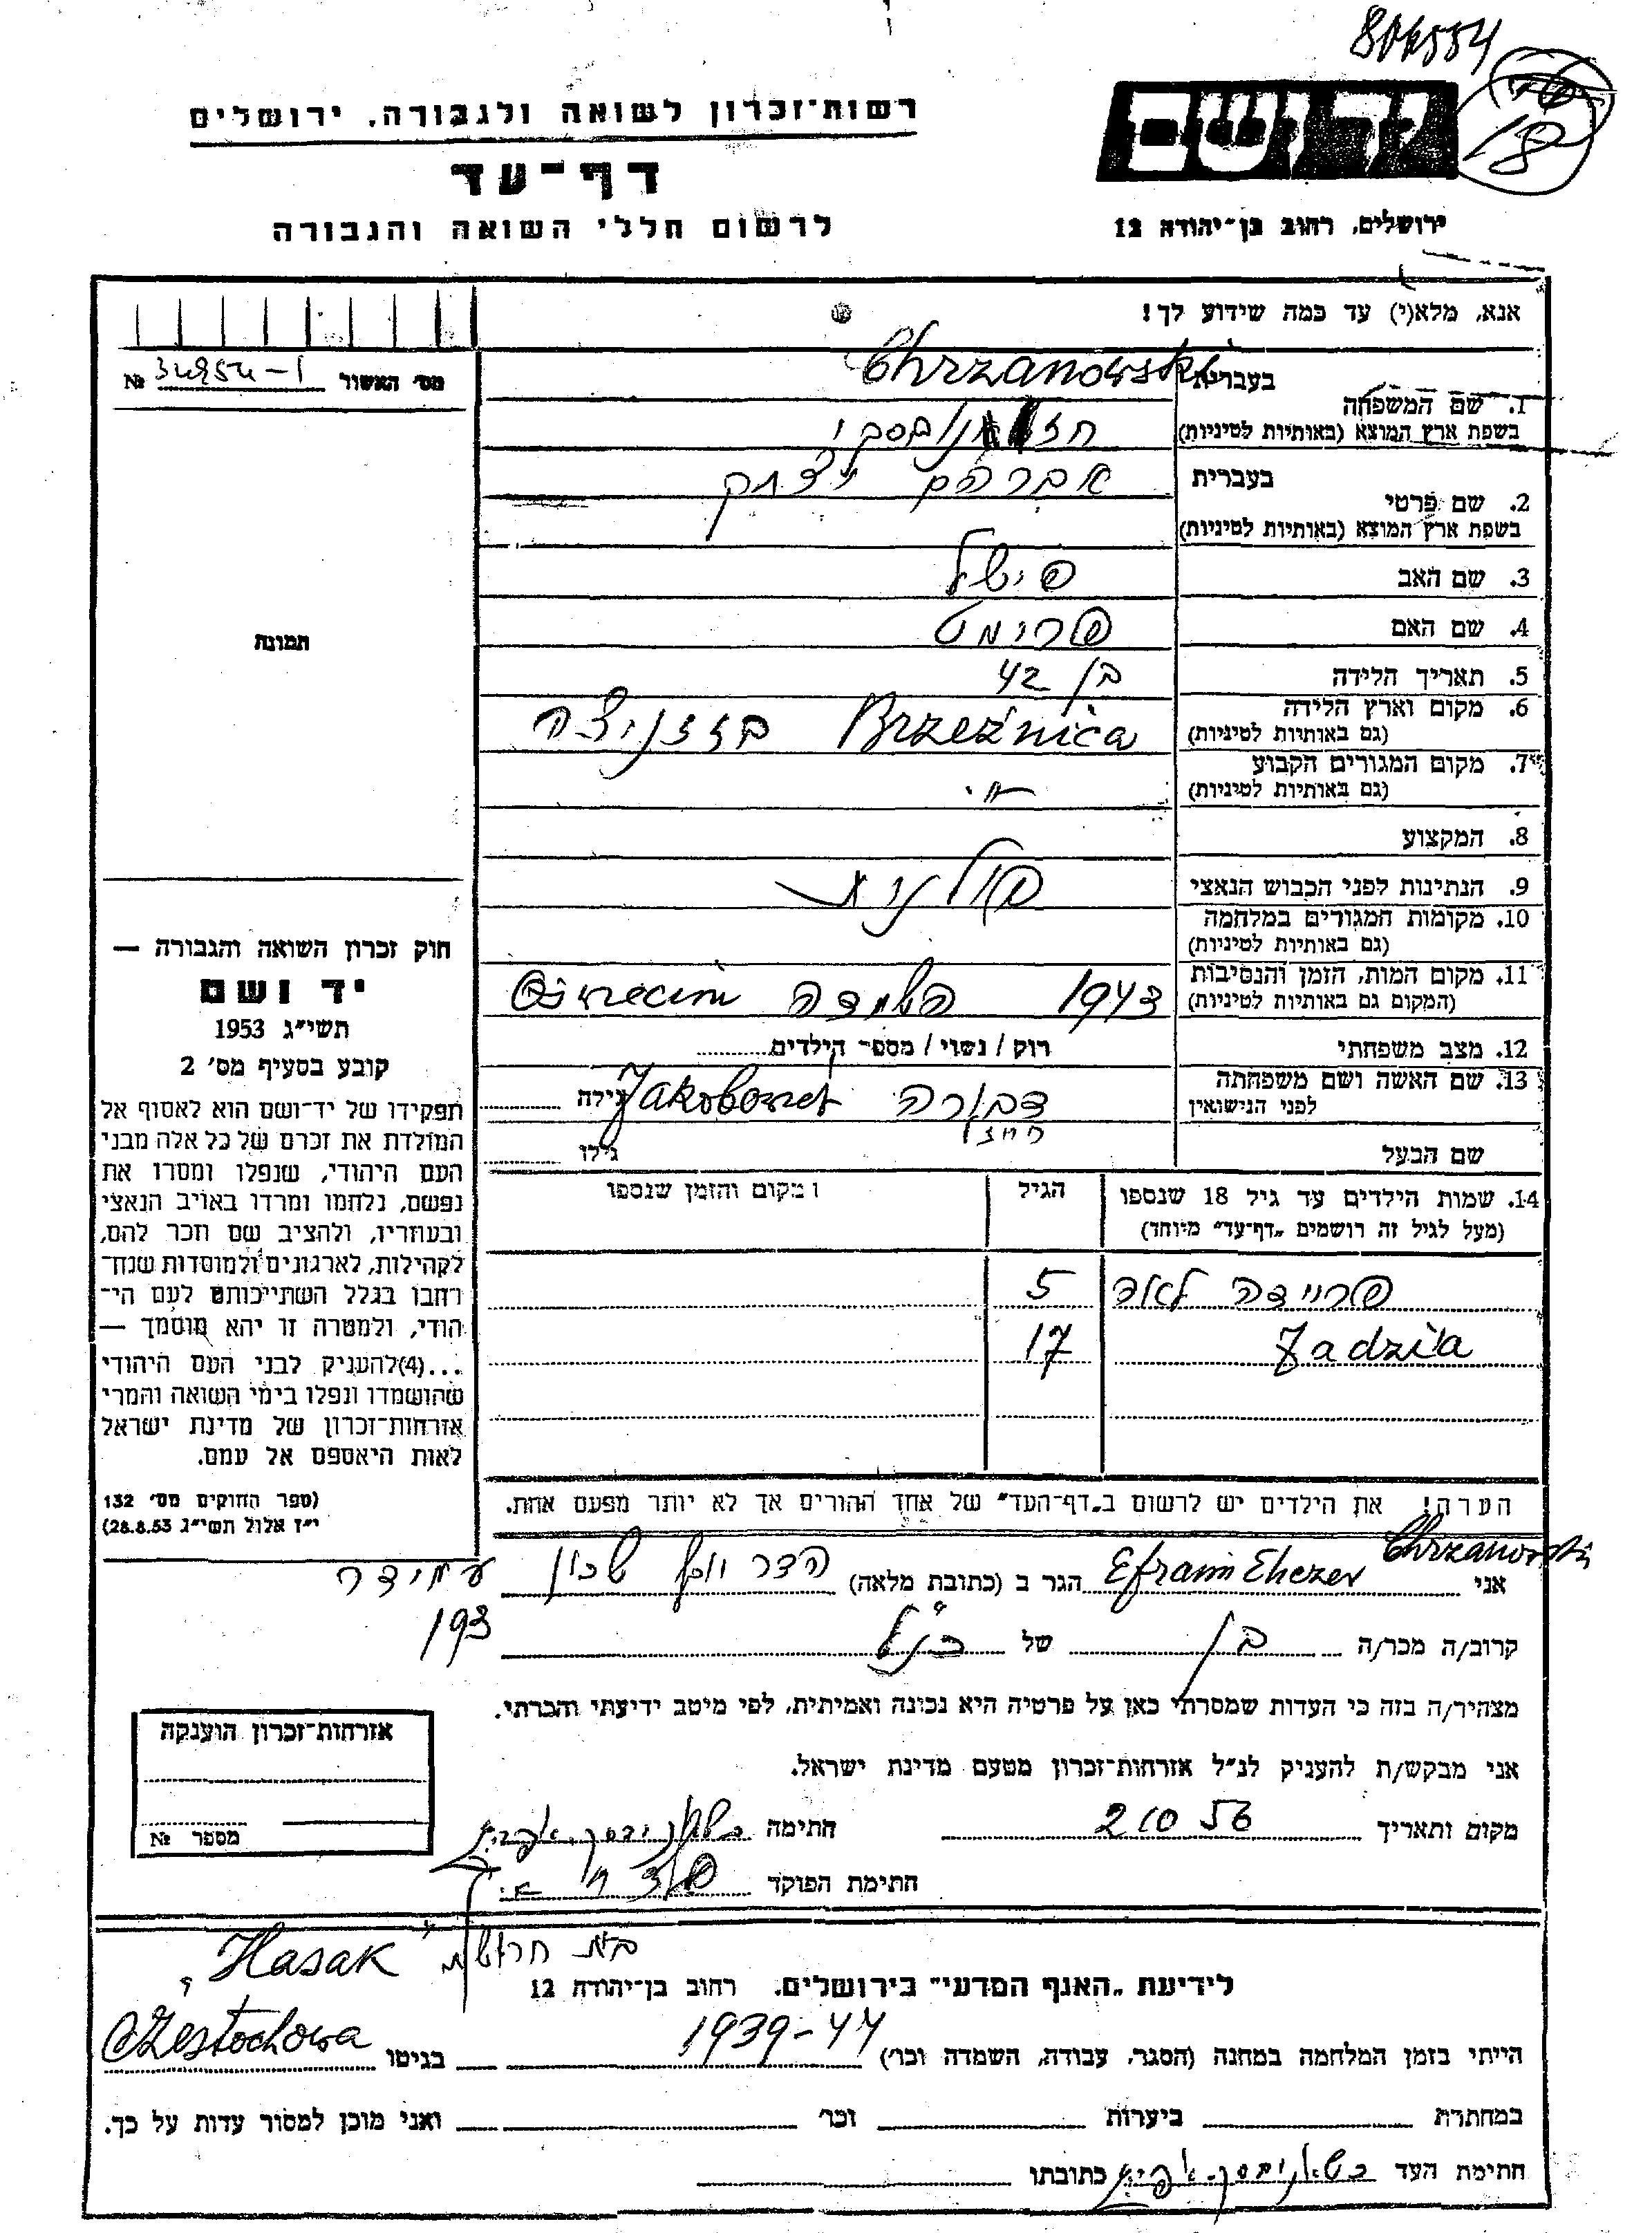 רשות־זכרון לשואה ולגבורה, ירושלים
דף־עד
לרשום חללי השואה והגבורה
18
ירושלים, רחוב בן־יהודה 12
אנא, מלא(י) עד כמה שידוע לך!
מס׳ האשור №
Chrzanowski
בעברית
1. שם המשפחה
בשפת ארץ המוצא (באותיות לטיניות)
בעברית אברהם יצחק
2. שם פרטי
בשפת ארץ המוצא (באותיות לטיניות)
3. שם האב פישל
4. שם האם פרימט
5. תאריך הלידה בן 42
6. מקום וארץ הלידה Brzeźnica בזזניצה
(גם באותיות לטיניות)
7. מקום המגורים הקבוע
(גם באותיות לטיניות)
8. המקצוע
9. הנתינות לפני הכבוש הנאצי פולנית
10. מקומות המגורים במלחמה
(גם באותיות לטיניות)
11. מקום המות, הזמן והנסיבות 1943 השמדה Oświęcim
(המקום גם באותיות לטיניות)
12. מצב משפחתי רוק / נשוי / מספר הילדים
13. שם האשה ושם משפחתה דבורה Jakobowicz גילה
לפני הנישואין
שם הבעל גילו
14. שמות הילדים עד גיל 18 שנספו הגיל ו מקום והזמן שנספו
(מעל לגיל זה רושמים „דף־עד” מיוחד)
פריידה לאה 5
Jadzia 17
הערה! את הילדים יש לרשום ב„דף־העד” של אחד ההורים אך לא יותר מפעם אחת.
תמונת
חוק זכרון השואה והגבורה —
יד ושם
תשי״ג 1953
קובע בסעיף מס׳ 2
תפקידו של יד־ושם הוא לאסוף אל
המולדת את זכרם של כל אלה מבני
העם היהודי, שנפלו ומסרו את
נפשם, נלחמו ומרדו באויב הנאצי
ובעוזריו, ולהציב שם וזכר להם,
לקהילות, לארגונים ולמוסדות שנח־
רחבו בגלל השתייכותם לעם הי־
הודי, ולמטרה זו יהא מוסמך —
...(4) להעניק לבני העם היהודי
שהושמדו ונפלו בימי השואה והמרי
אזרחות־זכרון של מדינת ישראל
לאות היאספם אל עמם.
(ספר החוקים מס׳ 132
י״ז אלול תשי״ג 28.8.53)
Chrzanowski
אני Efraim Eliezer הגר ב (כתובת מלאה) הדר יוסף שכון עמידר
193
קרוב/ה מכר/ה בן של כנ״ל
מצהיר/ה בזה כי העדות שמסרתי כאן על פרטיה היא נכונה ואמיתית, לפי מיטב ידיעתי והכרתי.
אני מבקש/ת להעניק לנ״ל אזרחות־זכרון מטעם מדינת ישראל.
מקום ותאריך 2 10 56 חתימה
חתימת הפוקד
אזרחות־זכרון הוענקה
מספר №
בית חרושת "Hasak"
לידיעת „האגף המדעי” בירושלים, רחוב בן־יהודה 12
הייתי בזמן המלחמה במחנה (הסגר, עבודה, השמדה וכו׳) 1939-44 בגיטו Czestochowa
במחתרת ביערות וכו׳ ואני מוכן למסור עדות על כך.
חתימת העד כתובתו